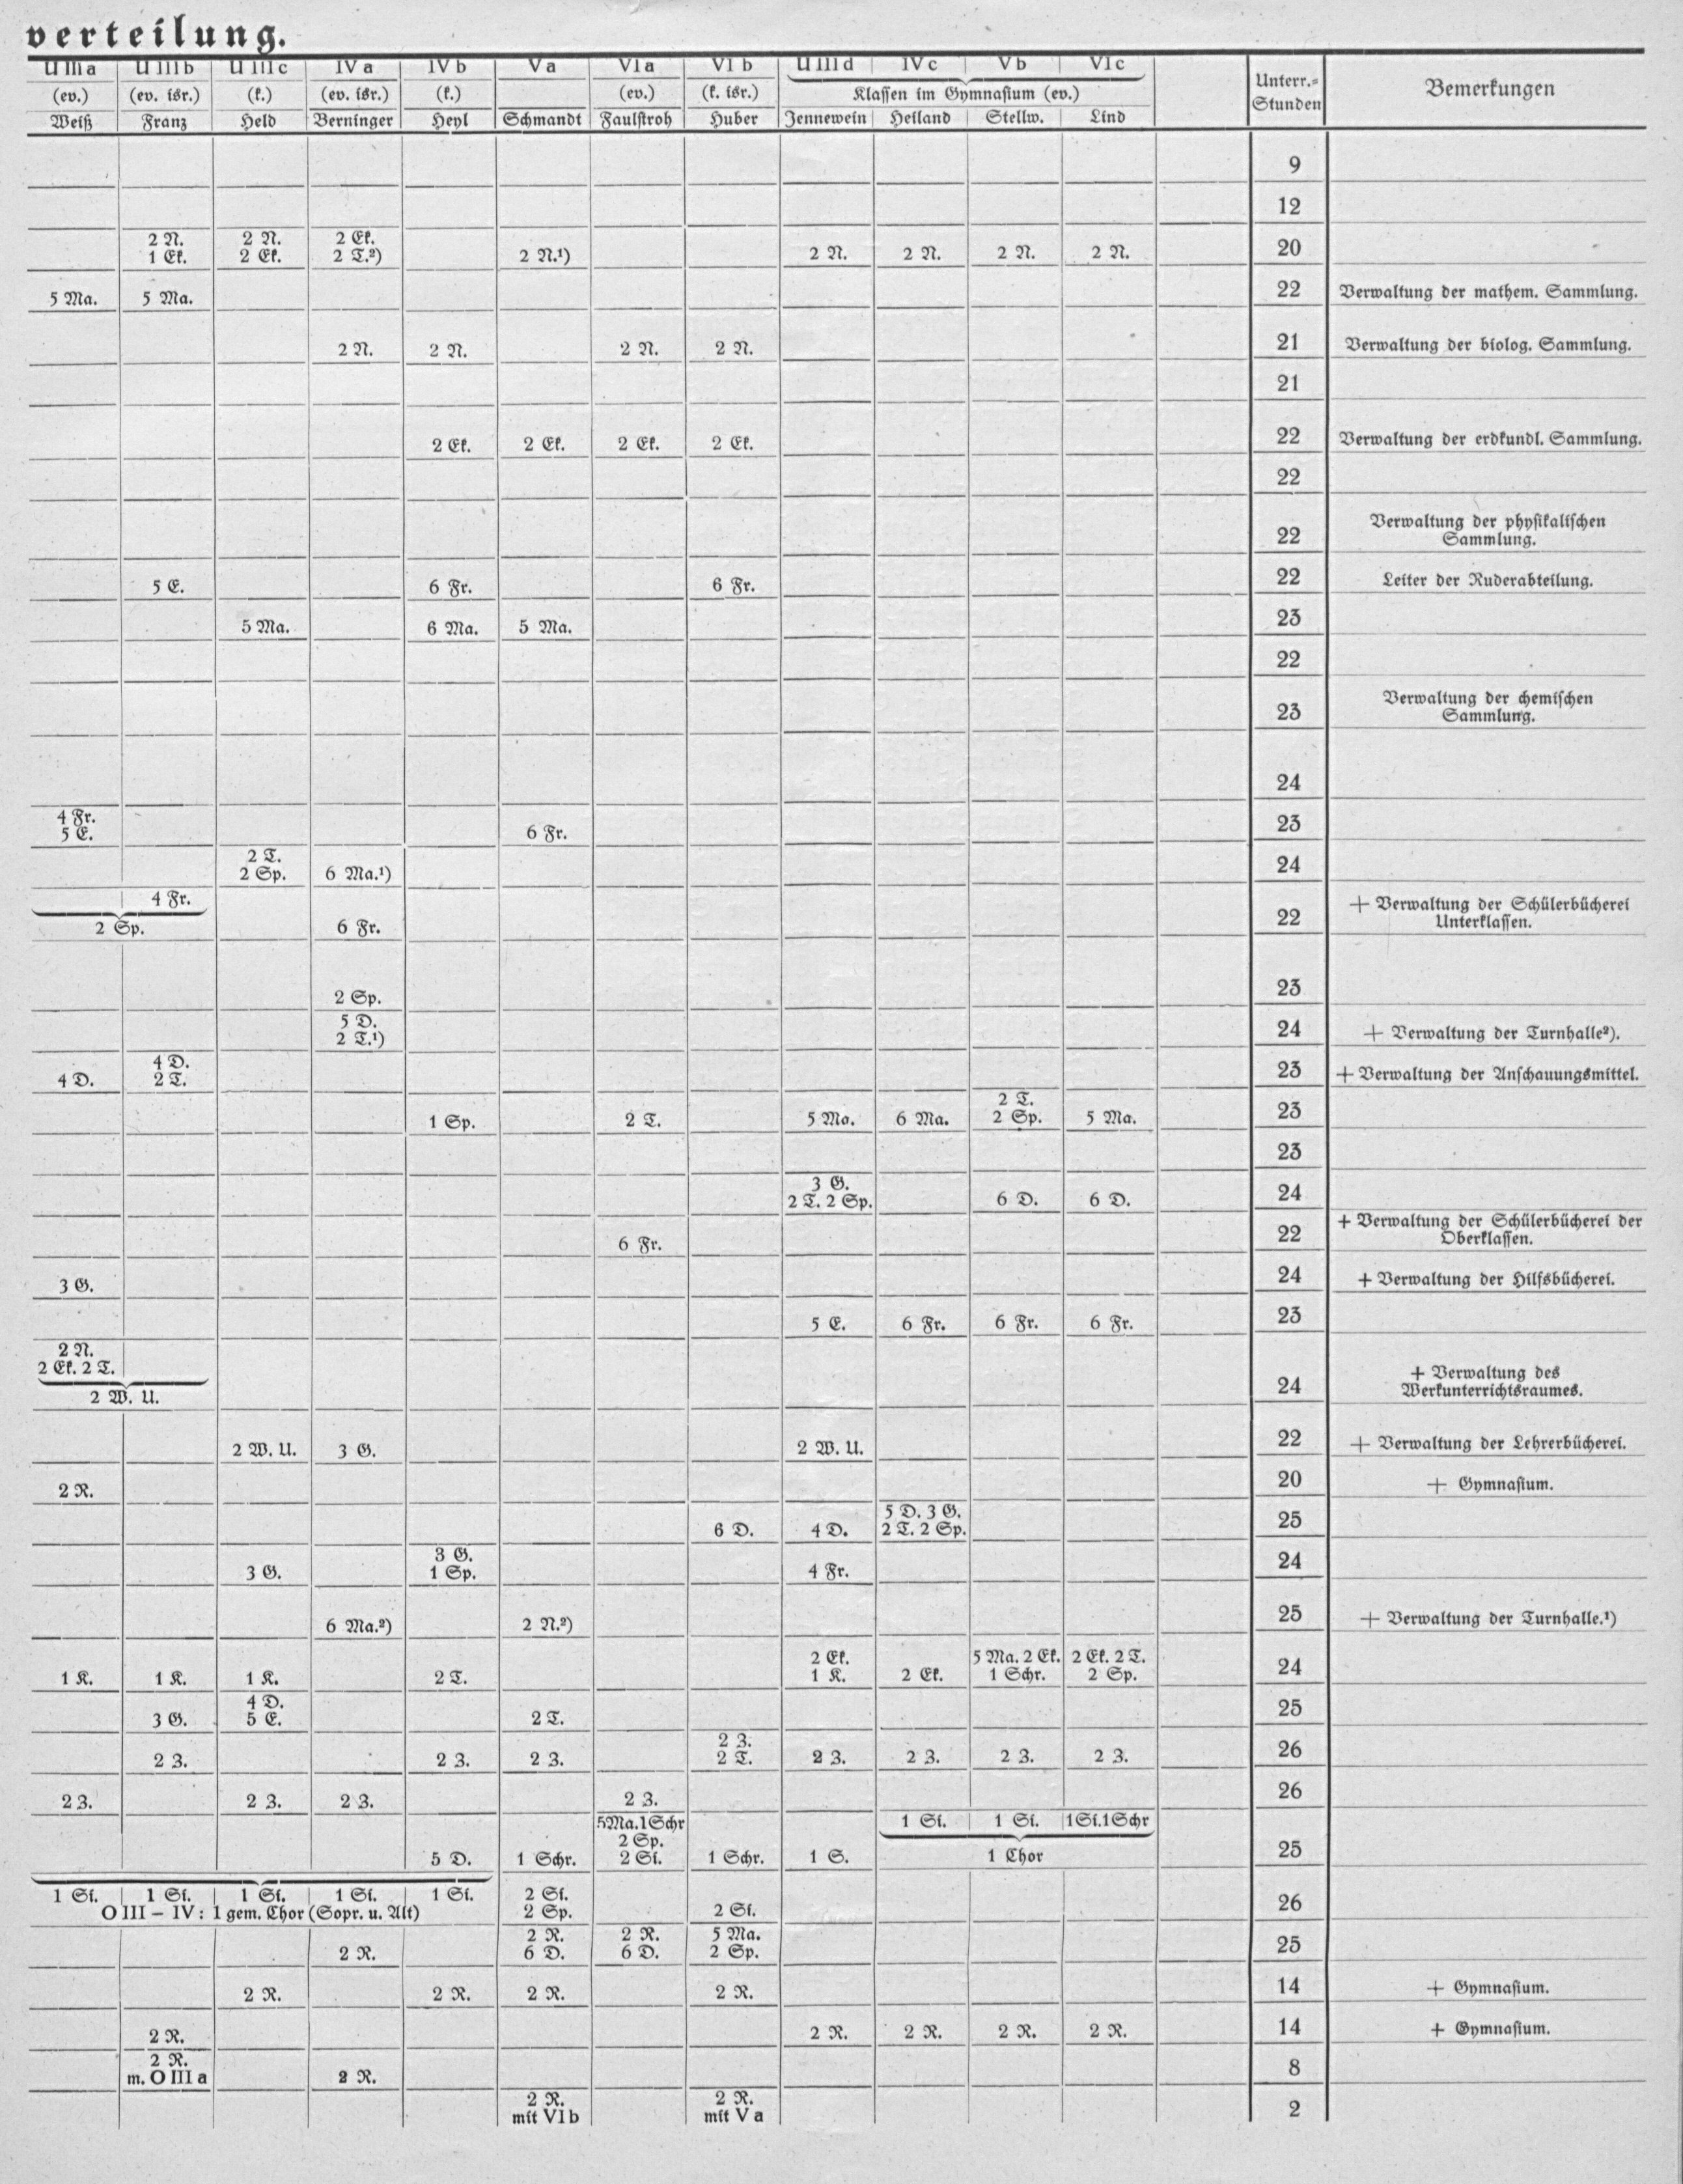 verteilung.
U III a U III b U III c IV a IV b V a VI a VI b U III d IV c V b VI c
(ev.) (ev. isr.) (k.) (ev. isr.) (k.) (ev.) (k. isr.) Klassen im Gymnasium (ev.) Unterr.- Stunden Bemerkungen
Weiß Franz Held Berninger Heyl Schmandt Faulstroh Huber Jennewein Heiland Stellw. Lind
9
12
2 N. 2 N. 2 Ek.
1 Ek. 2 Ek. 2 T.²) 2 N.¹) 2 N. 2 N. 2 N. 2 N. 20
5 Ma. 5 Ma. 22 Verwaltung der mathem. Sammlung.
2 N. 2 N. 2 N. 2 N. 21 Verwaltung der biolog. Sammlung.
21
2 Ek. 2 Ek. 2 Ek. 2 Ek. 22 Verwaltung der erdkundl. Sammlung.
22
Verwaltung der physikalischen
22 Sammlung.
5 E. 6 Fr. 6 Fr. 22 Leiter der Ruderabteilung.
5 Ma. 6 Ma. 5 Ma. 23
22
Verwaltung der chemischen
23 Sammlung.
24
4 Fr.
5 E. 6 Fr. 23
2 T.
2 Sp. 6 Ma.¹) 24
4 Fr. + Verwaltung der Schülerbücherei
2 Sp. 6 Fr. 22 Unterklassen.
2 Sp. 23
5 D.
2 T.¹) 24 + Verwaltung der Turnhalle²).
4 D.
4 D. 2 T. 23 + Verwaltung der Anschauungsmittel.
2 T.
1 Sp. 2 T. 5 Ma. 6 Ma. 2 Sp. 5 Ma. 23
23
3 G.
2 T. 2 Sp. 6 D. 6 D. 24
+ Verwaltung der Schülerbücherei der
6 Fr. 22 Oberklassen.
3 G. 24 + Verwaltung der Hilfsbücherei.
5 E. 6 Fr. 6 Fr. 6 Fr. 23
2 N.
2 Ek. 2 T. + Verwaltung des
2 W. U. 24 Werkunterrichtsraumes.
2 W. U. 3 G. 2 W. U. 22 + Verwaltung der Lehrerbücherei.
2 R. 20 + Gymnasium.
5 D. 3 G.
6 D. 4 D. 2 T. 2 Sp. 25
3 G.
3 G. 1 Sp. 4 Fr. 24
6 Ma.²) 2 N.²) 25 + Verwaltung der Turnhalle.¹)
2 Ek. 5 Ma. 2 Ek. 2 Ek. 2 T.
1 K. 1 K. 1 K. 2 T. 1 K. 2 Ek. 1 Schr. 2 Sp. 24
4 D.
3 G. 5 E. 2 T. 25
2 Z.
2 Z. 2 Z. 2 Z. 2 T. 2 Z. 2 Z. 2 Z. 2 Z. 26
2 Z. 2 Z. 2 Z. 2 Z. 26
5Ma.1Schr 1 Si. 1 Si. 1Si.1Schr
2 Sp.
5 D. 1 Schr. 2 Si. 1 Schr. 1 S. 1 Chor 25
1 Si. 1 Si. 1 Si. 1 Si. 1 Si. 2 Si.
O III – IV: 1 gem. Chor (Sopr. u. Alt) 2 Sp. 2 Si. 26
2 R. 2 R. 5 Ma.
2 R. 6 D. 6 D. 2 Sp. 25
2 R. 2 R. 2 R. 2 R. 14 + Gymnasium.
2 R. 2 R. 2 R. 2 R. 2 R. 14 + Gymnasium.
2 R.
m. O III a 2 R. 8
2 R. 2 R.
mit VI b mit V a 2